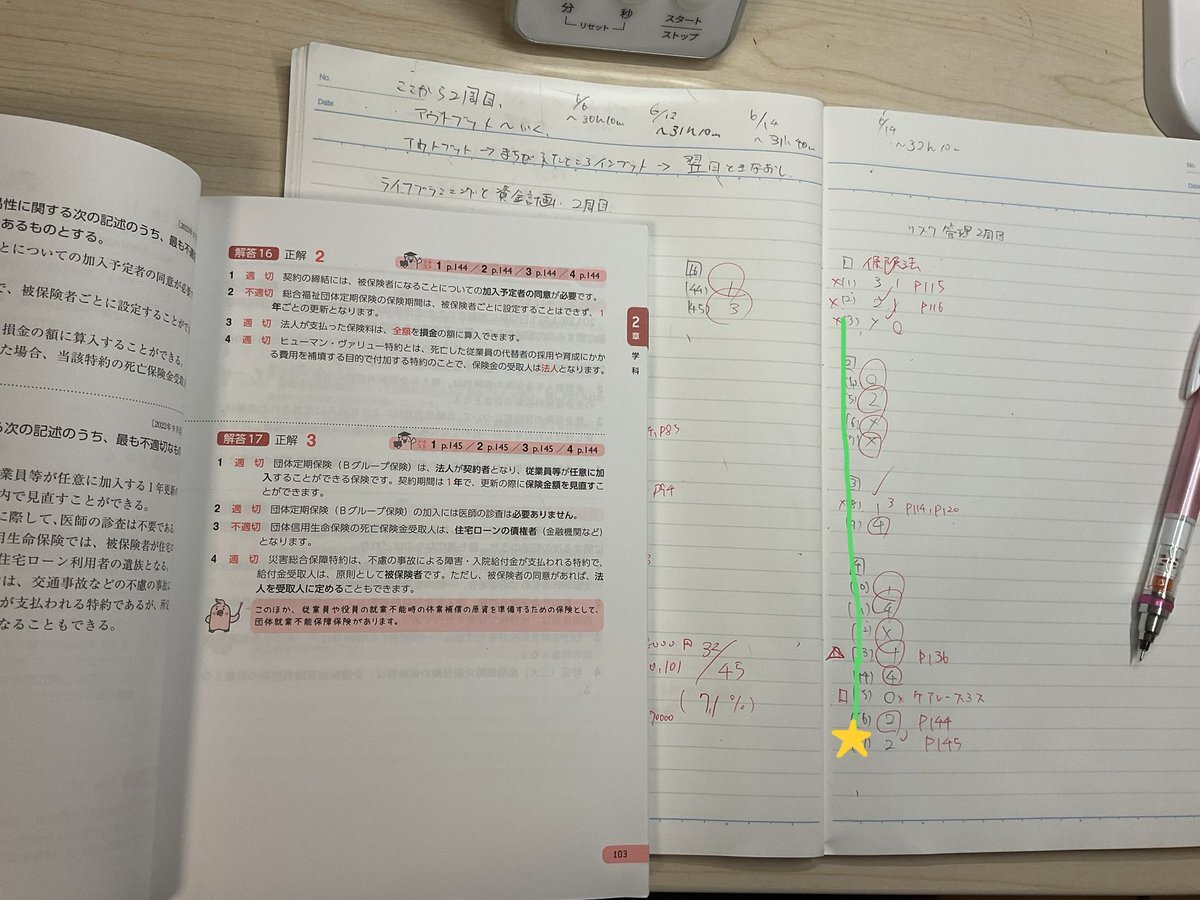 分 秒
リセット
スタート
ストップ
易性に関する次の記述のうち、最も不適
あるものとする。
とについての加入予定者の同意が必要
で、被保険者ごとに設定することがで
損金の額に算入することができる。
た場合、当該特約の死亡保険金受取
[2022年9月
る次の記述のうち、最も不適切なもの
業員等が任意に加入する1年更新の
内で見直すことができる。
に際して、医師の診査は不要である
用生命保険では、被保険者が住宅
住宅ローン利用者の遺族となる。
は、交通事故などの不慮の事故に
が支払われる特約であるが、所定
なることもできる。
解答16 正解 2
1 p.144 / 2 p.144 / 3 p.144 / 4 p.144
1 適 切 契約の締結には、被保険者になることについての加入予定者の同意が必要です。
2 不適切 総合福祉団体定期保険の保険期間は、被保険者ごとに設定することはできず、1
年ごとの更新となります。
3 適 切 法人が支払った保険料は、全額を損金の額に算入できます。
4 適 切 ヒューマン・ヴァリュー特約とは、死亡した従業員の代替者の採用や育成にかか
る費用を補填する目的で付加する特約のことで、保険金の受取人は法人となります。
2章
学科
解答17 正解 3
1 p.145 / 2 p.145 / 3 p.145 / 4 p.144
1 適 切 団体定期保険（Bグループ保険）は、法人が契約者となり、従業員等が任意に加
入することができる保険です。契約期間は1年で、更新の際に保険金額を見直すこ
とができます。
2 適 切 団体定期保険（Bグループ保険）の加入には医師の診査は必要ありません。
3 不適切 団体信用生命保険の死亡保険金受取人は、住宅ローンの債権者（金融機関など）
となります。
4 適 切 災害総合保障特約は、不慮の事故による障害・入院給付金が支払われる特約で、
給付金受取人は、原則として被保険者です。ただし、被保険者の同意があれば、法
人を受取人に定めることもできます。
このほか、従業員や役員の就業不能時の休業補償の原資を準備するための保険として、
団体就業不能保障保険があります。
103
No.
Date
ここから2周目、
アウトプットへいく、
6/6
~30h10m
6/12
~31h10m
6/14
~31h40m
アウトプット→まちがえたところインプット→翌日ときなおし
ライフプランニングと資金計画 2周目
(44) 1
(45) 3
P94
32/45
(71%)
6/14
~32h10m
No.
リスク管理2周目
1 保険法
×(1) 3 1 P115
×(2) P116
×(3) × ○
2
○
(5) 2
(6) ×
(7) ×
3
×(8) 1 3 P114, P120
(9) 4
4
(10) 1
(11) 4
(12) ×
(13) 1 P136
(14) 4
(15) ○× ケアレースミス
(16) 2 P144
2 P145